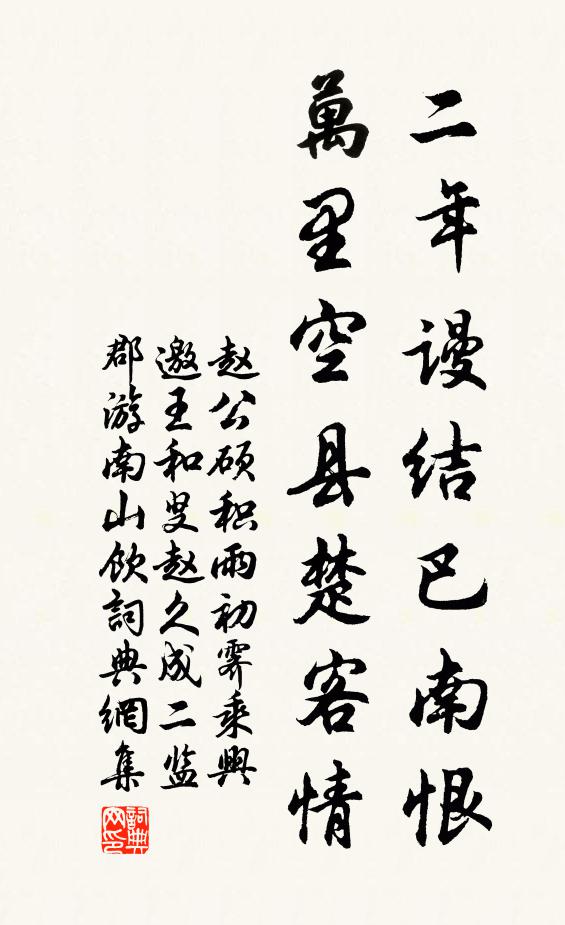 二年谩结巴南恨
萬里空县楚客情
赵公硕积雨初霽乘興
邀王和叟赵久成二监
郡游南山饮詞典網集
詞典
网印